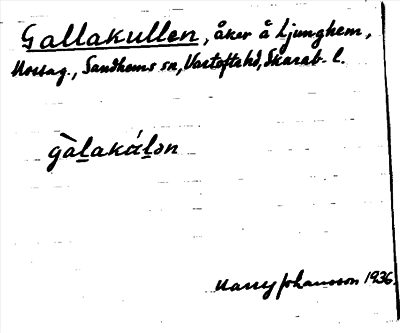 Gallakullen, åker å Ljunghem,
Mossag., Sandhems sn, Vartoftahd, Skarab. l.
gàl̠akál̠ən
Harry Johansson 1936.